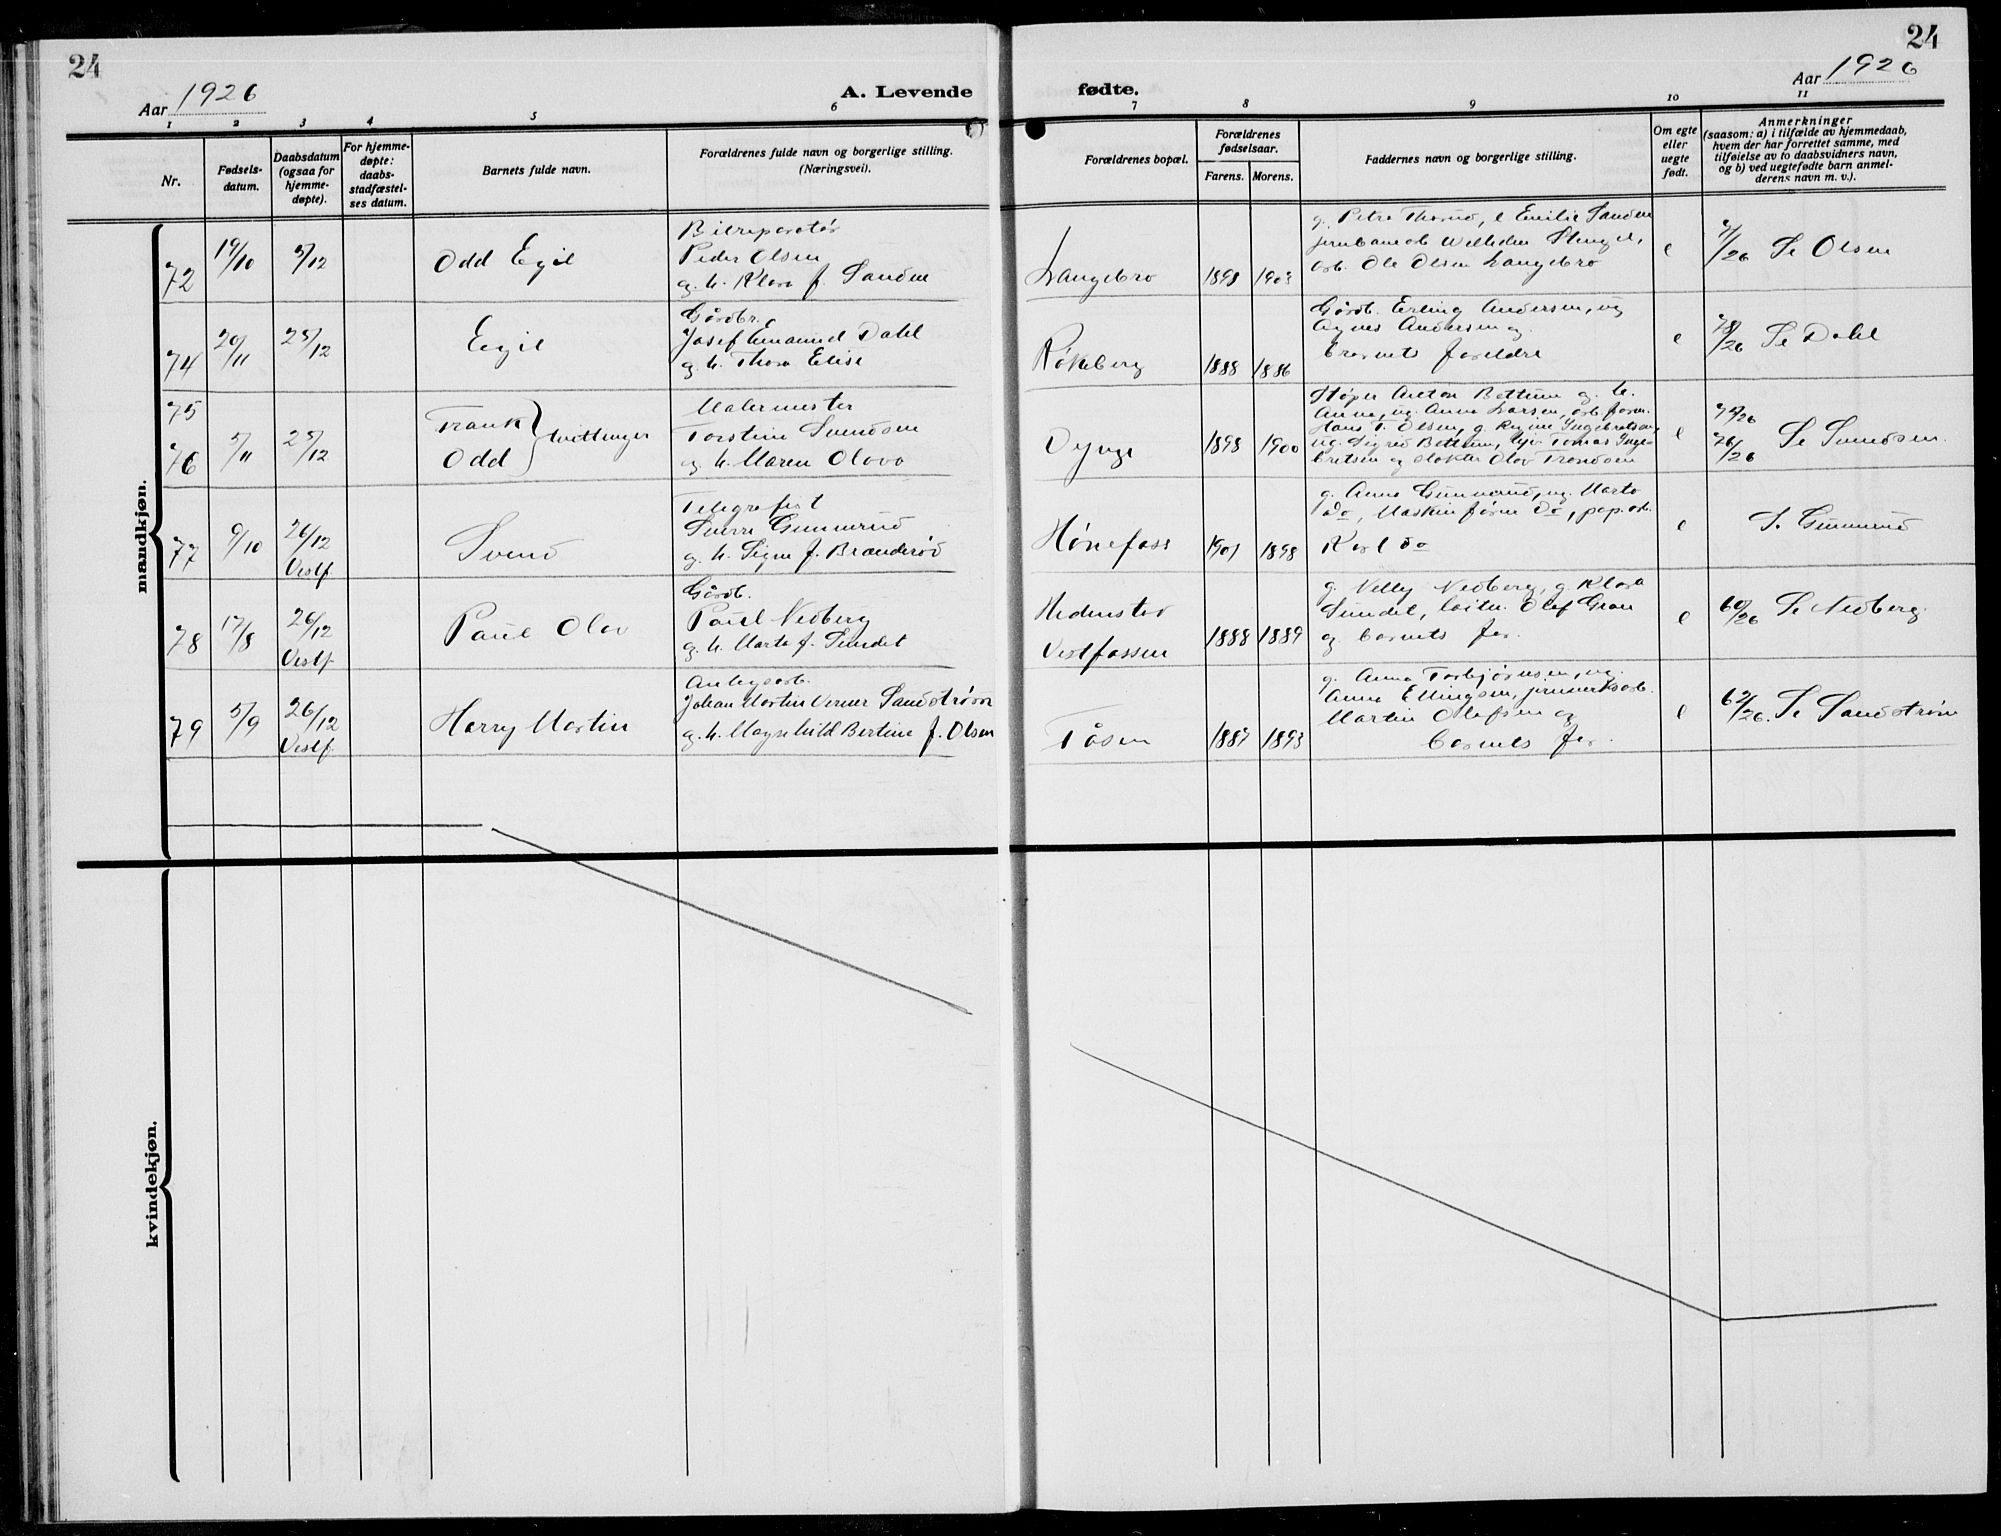 24
Aar 1926
A. Levende
1 2 3 4 5 6
Nr.
Fødsels-
datum.
Daabsdatum
(ogsaa for
hjemme-
døpte).
For hjemme-
døpte:
daabs-
stadfæstel-
ses datum.
Barnets fulde navn.
Forældrenes fulde navn og borgerlige stilling.
(Næringsvei).
mandkjøn.
72 19/10 5/12 Odd Egil
Bilreparatør
Peder Olsen
og h. Klara f. Sanden
74 20/11 25/12 Egil
Gårdbr.
Josef Emanuel Dahl
og h. Thora Elise
75
76 5/11 25/12
Frank
Odd
tvillinger
Malermester
Torstein Svendsen
og h. Maren Olava
77 9/10 26/12
Vestf.
Svend
Telegrafist
Sverre Gunnerud
og h. Signe f. Branderød
78 17/8 26/12
Vestf.
Paul Olav
Gårdb.
Paul Nedberg
og h. Marta f. Sundet
79 5/9 26/12
Vestf.
Harry Martin
Anlegsarb.
Johan Martin Verner Sandstrøm
og h. Magnhild Bertine f. Olsen
kvindekjøn.
24
Aar 1926
fødte.
7 8 9 10 11
Forældrenes bopæl.
Forældrenes
fødselsaar.
Farens. Morens.
Faddernes navn og borgerlige stilling.
Om egte
eller
uegte
født.
Anmerkninger
(saasom: a) i tilfælde av hjemmedaab,
hvem der har forrettet samme, med
tilføielse av to daabsvidners navn,
og b) ved uegtefødte barn anmel-
derens navn m. v.).
Langebro 1898 1903
g. Petra Thorud, e Emilie Sanden
jernbanearb. Wilhelm Stengel,
Arb. Ole Olsen Langebro
e 71/26 Se Olsen
Røkeberg 1888 1886
Gårdb. Erling Andersen, ug
Agnes Andersen og
barnets foreldre
e 73/26 Se Dahl
Dynge 1898 1900
Støper Anton Bottum og h.
Anna, ug. Anna Larsen, arb. form.
Hans T. Olsen, g. Regine Ingebretsen,
ug. Sigrid Bottum, Tomas Inge-
bretsen og Olav Trondsen
e 75/26
76/26
Se Svendsen.
Hønefoss 1901 1898
g. Anna Gunnerud, ug. Marta
do, Maskinfører do, pap. arb.
Karl do
e S. Gunnerud
Hedenstad
Vestfossen 1888 1889
g. Nelly Nedberg, g. Klara
Sundet, løitn. Olaf Gran
og barnets for.
e 60/26 Se Nedberg.
Tåsen 1887 1893
g. Anna Torbjørnsen, ug.
Anna Ellingsen, jernverksarb.
Martin Olafsen og
barnets for.
e 62/26. Se Sandstrøm